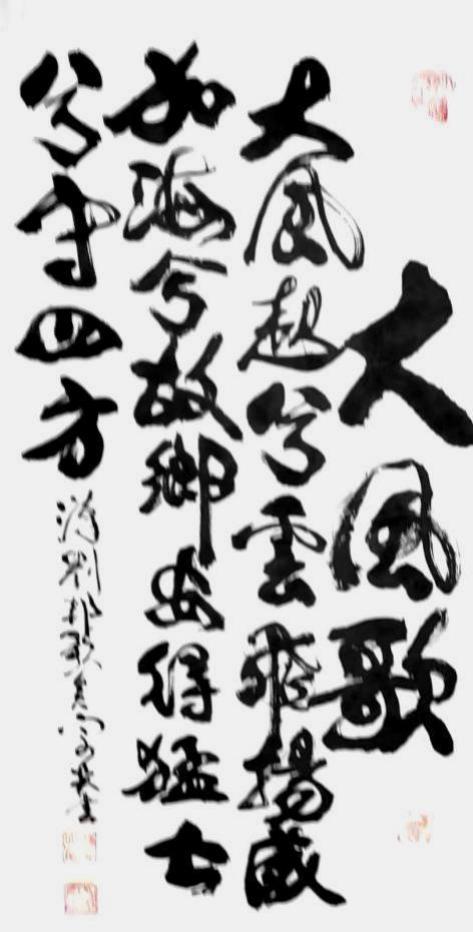 大風歌
大風起兮雲飛揚威
加海兮故鄉安得猛士
兮守四方
劉邦歌